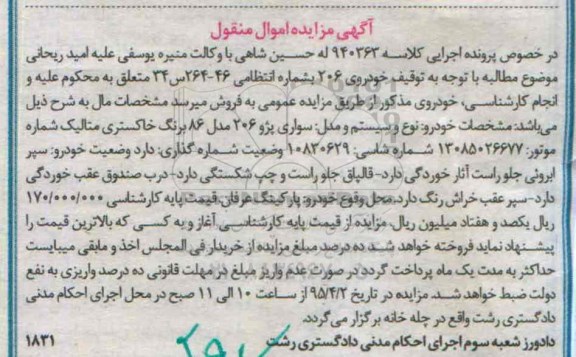 آگهی مزایده اموال منقول
در خصوص پرونده اجرایی کلاسه ۹۴۰۳۶۳ له حسین شاهی با وکالت منیره یوسفی علیه امید ریحانی
موضوع مطالبه با توجه به توقیف خودروی ۲۰۶ بشماره انتظامی ۴۶-۲۶۴س۳۴ متعلق به محکوم علیه و
انجام کارشناسی، خودروی مذکور از طریق مزایده عمومی به فروش میرسد مشخصات مال به شرح ذیل
می‌باشد: مشخصات خودرو: نوع و سیستم و مدل: سواری پژو ۲۰۶ مدل ۸۶ برنگ خاکستری متالیک شماره
موتور: ۱۳۰۸۵۰۲۶۶۷۷ شماره شاسی: ۱۰۸۲۰۶۲۹ وضعیت شماره گذاری: دارد وضعیت خودرو: سپر
ابروئی جلو راست آثار خوردگی دارد-قالپاق جلو راست و چپ شکستگی دارد-درب صندوق عقب خوردگی
دارد-سپر عقب خراش رنگ دارد. محل وقوع خودرو: پارکینگ عرفان. قیمت پایه کارشناسی ۱۷۰/۰۰۰/۰۰۰
ریال یکصد و هفتاد میلیون ریال. مزایده از قیمت پایه کارشناسی آغاز و به کسی که بالاترین قیمت را
پیشنهاد نماید فروخته خواهد شد ده درصد مبلغ مزایده از خریدار فی المجلس اخذ و مابقی میبایست
حداکثر به مدت یک ماه پرداخت گردد در صورت عدم واریز مبلغ در مهلت قانونی ده درصد واریزی به نفع
دولت ضبط خواهد شد. مزایده در تاریخ ۹۵/۴/۲ از ساعت ۱۰ الی ۱۱ صبح در محل اجرای احکام مدنی
دادگستری رشت واقع در چله خانه برگزار می‌گردد.
دادورز شعبه سوم اجرای احکام مدنی دادگستری رشت ۱۸۳۱